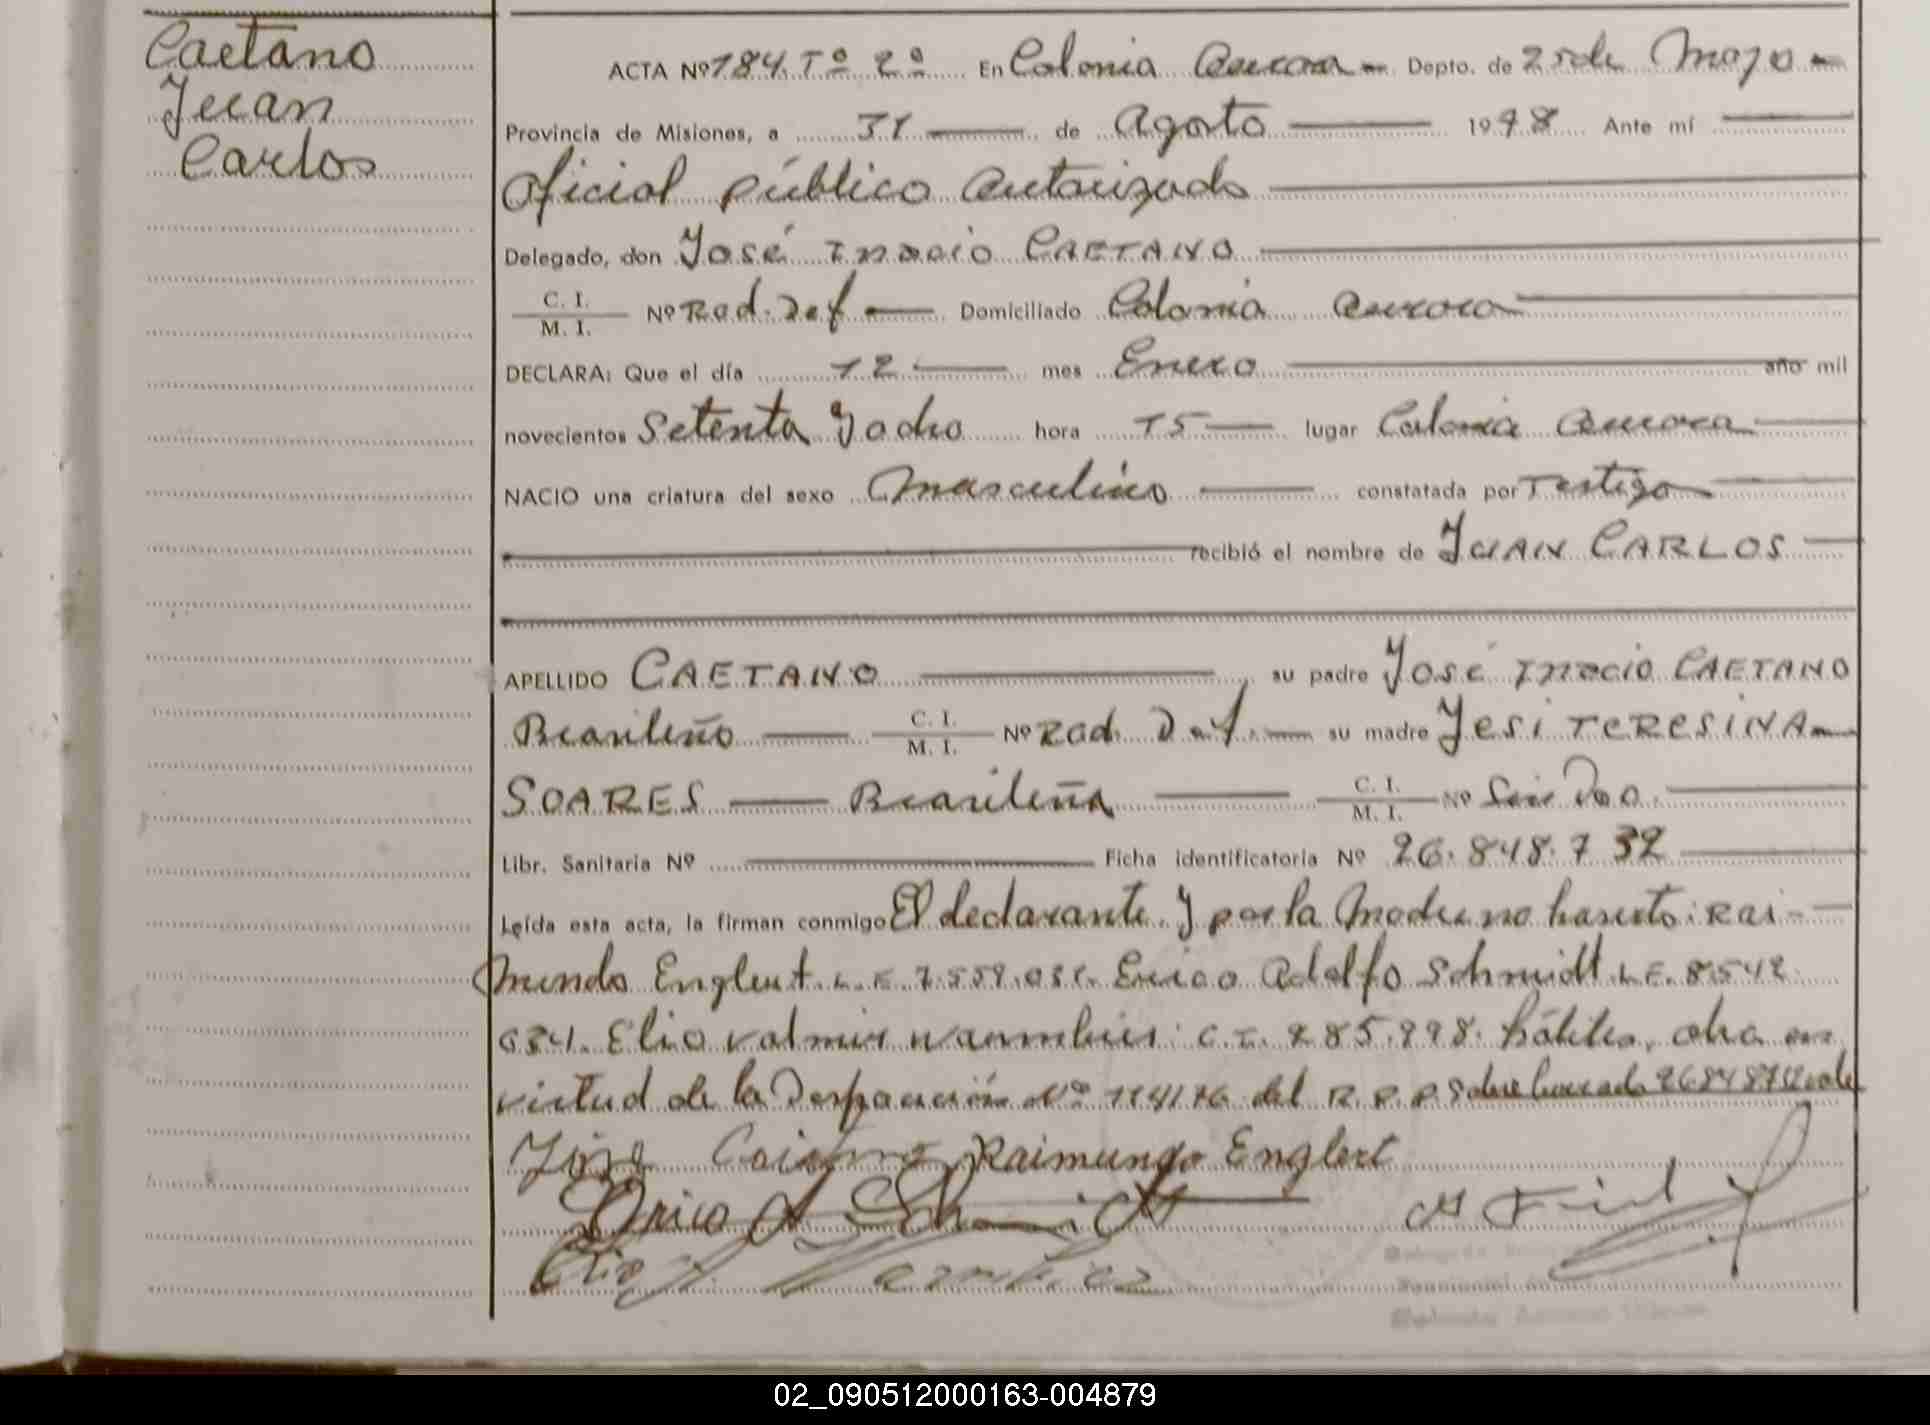 Caetano
Juan
Carlos
ACTA Nº 184 Tº 2º En Colonia Aurora Depto. de 25 de Mayo
Provincia de Misiones, a 31 de Agosto 1978 Ante mí
Oficial público autorizado
Delegado, don José Inacio CAETANO
C. I.
M. I. Nº Rad. Def Domiciliado Colonia Aurora
DECLARA: Que el día 12 mes Enero año mil
novecientos Setenta y ocho hora 15 lugar Colonia Aurora
NACIO una criatura del sexo Masculino constatada por Testigo
recibió el nombre de JUAN CARLOS
APELLIDO CAETANO su padre José Inacio CAETANO
Brasileño C. I. M. I. Nº Rad. Def. su madre Yesi TERESINA
SOARES Brasileña C. I. M. I. Nº Sin Doc.
Libr. Sanitaria Nº Ficha identificatoria Nº 26.848.732
Leída esta acta, la firman conmigo El declarante y por la Madre no hacerlo: Rai-
mundo Englert L.E. 7.559. Erico Adolfo Schmidt L.E. 8.542
634. Elio Valmir C.I. 285.998. hábiles, otra en
virtud de la Nº del R.P.P. Sobre borrado vale
Raimundo Englert
Erico A Schmidt
Elio
02_090512000163-004879